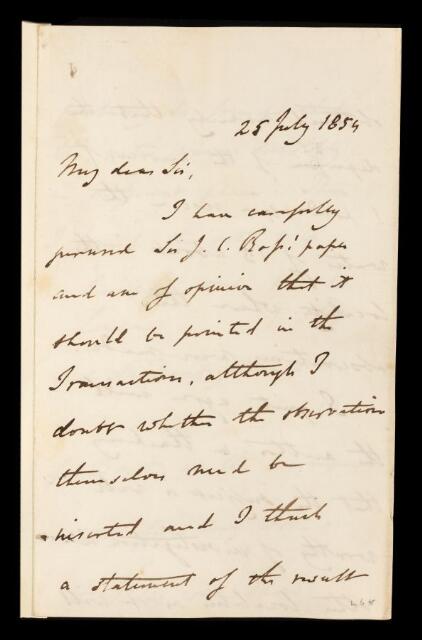 25 July 1854
My dear Sir,
I have carefully
perused Sir J. C. Ross' paper
and am of opinion that it
should be printed in the
Transactions, although I
doubt whether the observations
themselves need be
inserted and I think
a statement of the result